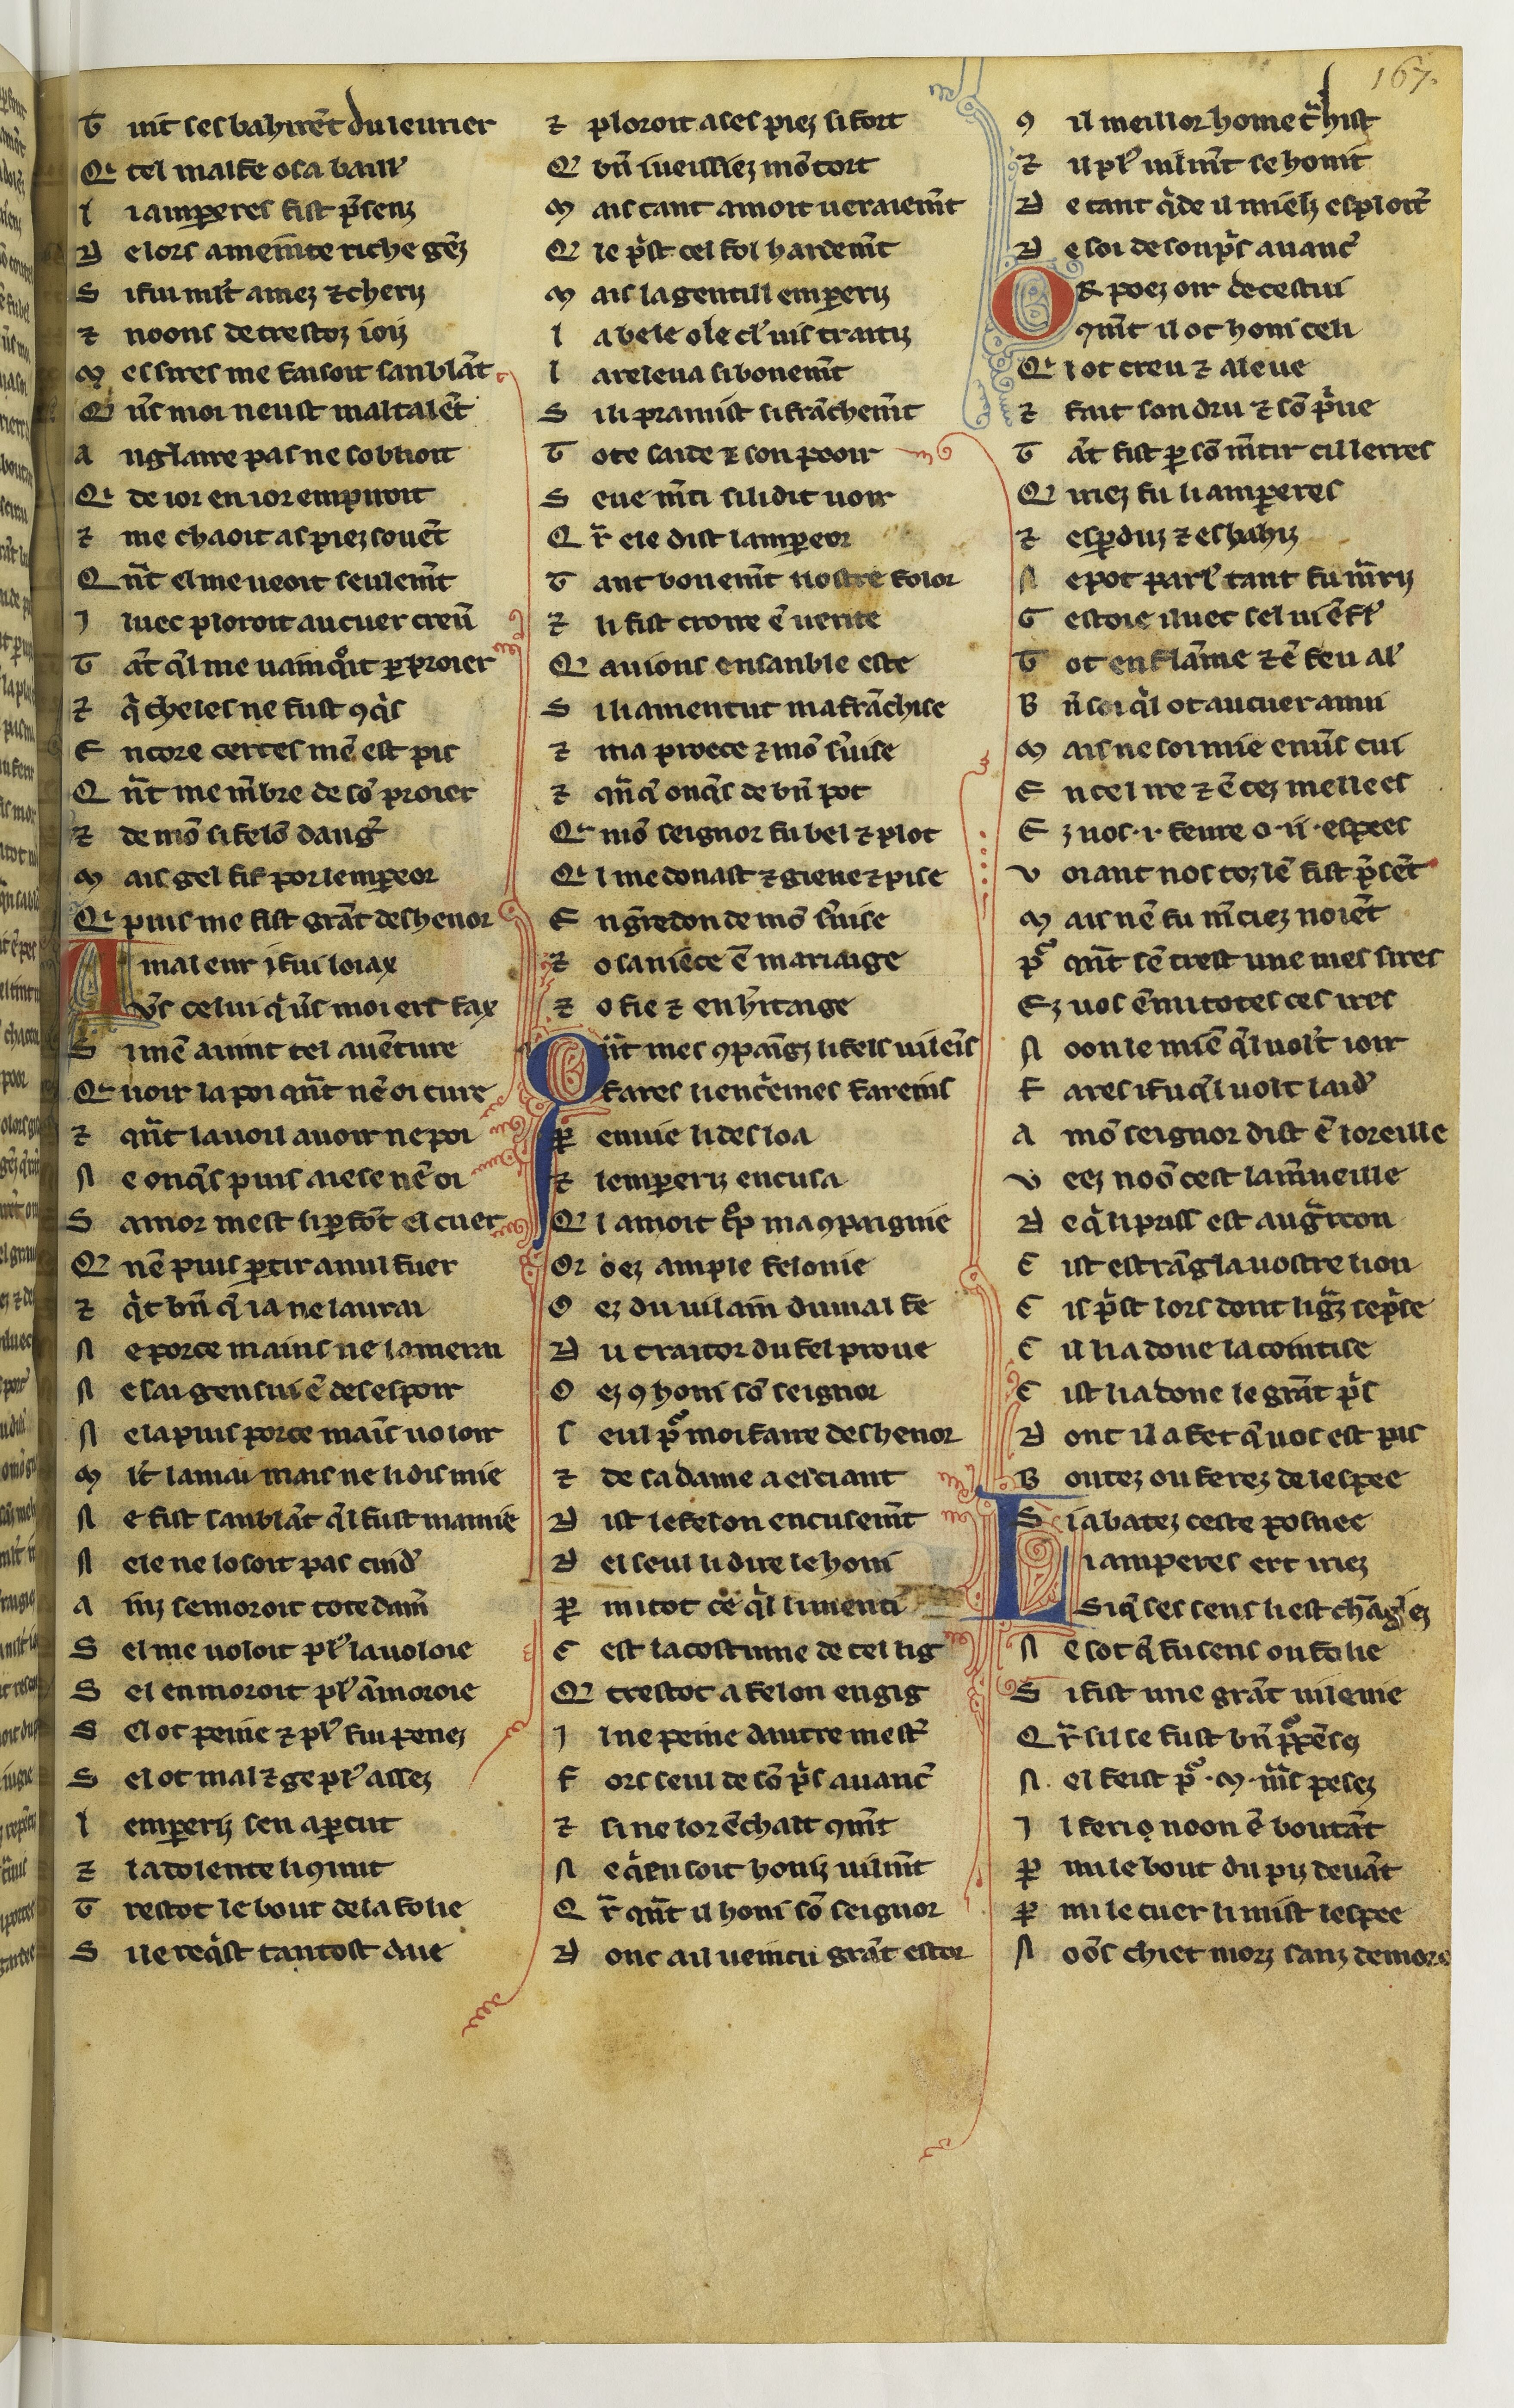 167.
T uit sesbahirēt du leurier
Q' tel malfe osa baill'
l i amperes fist p̄senz
D elors amenite riche gēz
S i fui mlt amez ⁊ cheriz
⁊ noons de trestoz ioiz
M es sires me faisoit sanblāt
Q' uˢs moi neust maltalēt
A
Q' de ior en ior empiroit
⁊ me chaoit as piez souēt
Q n̄t el me ueoit seulem̄t
I luec ploroit au cuer creu
T āt ql me uainqoit p proier
⁊ q cheles ne fust 9qis
E ncore certes mē est pis
Q n̄t me mbre de sō proier
⁊ de mō si felō dang'
M ais gel fis por lempeor
Q' puis me fist grāt deshenor
A mal eur i fui loiax
Vˢs celui q uˢs moi ert fax
S i mē auint tel auēture
Q' uoir la poi qn̄t nē oi cure
⁊ qn̄t la uoil auoir ne poi
N e onqs puis aiese nē oi
S amor mest si p fōt el cuer
Q' nē puis ptir a nul fuer
⁊ qt bn̄ q ia ne laurai
N e porce mains ne lamerai
N e sai gen sui ē desespoir
N e la puis porce mais uoloir
M lt lamai mais ne li dis mie
N e fist sanblāt ql fust mamie
N ele ne losoit pas cuid'
A
S el me uoloit pl' la uoloie
S el enmoroit pl' āmoroie
S el ot peine ⁊ pl' fui penez
S el ot mal ⁊ ge pl' assez
L emperiz sen apcut
⁊ la dolente li 9nut
T restot le bout de la folie
S i le reqist tantost
⁊ ploroit a ses piez si fort
Q' bn̄ i ueilliez mō tort
M ais tant amoit ueraiem̄t
Q' le pist cel fol hardem̄t
M ais la gentill emperiz
L a bele o le cl' uis traitiz
L a releua si bonem̄t
S i li pramist si frāchem̄t
T ote saide ⁊ son pooir
S en e m̄ti si li dit uoir
Q r ele dist lampeor
T ant bonem̄t nostre folor
⁊ li fist croire ē uerite
Q' auions ensanble este
S i li amentut ma frāchise
⁊ ma proece ⁊ mō suise
⁊ qn̄q onqs de bn̄ pot
Q' mō seignor fu bel ⁊ plot
Q' l me donast ⁊ giene ⁊ pise
E n gredon de mō suise
⁊ o sa niece ē mariaige
⁊ o fie ⁊ en hitaige
Q n̄t mes 9paīgz li fels uileīs
fares li enc̄emes farenis
P enuie li desloa
⁊ lemperiz encusa
Q' l amoit t̄p ma 9paignie
Or oez ample felonie
O ez du uilain du mal fe
D u traitor du fel proue
O ez 9 honi sō seignor
S eul p moi faire deshenor
⁊ de sa dame a esciant
D ist le felon encusem̄t
D el seul li dire le honi
P mi tot ce ql li menti
C est la costume de tel lig
Q' trestot a felon engig
I l ne peine dautre mest'
F ors seul de sō pis auanc'
⁊ si ne lor ēchatt 9m̄t
N e q eu soit honiz uilm̄t
Q r qn̄t il honi sō seignor
D onc a il ueincu grāt estor
9 il meillor home t̄hist
⁊ il pl' uilm̄t se honit
D e tant qde il mielz esploit'
D e soi de son pis auanc'
O R poez oir de cestui
9m̄t il ot honi celi
Q' i ot creu ⁊ aleue
⁊ fait son dru ⁊ sō piue
T āt fist p sō m̄tir cil lerres
Q' iriez fu li amperes
⁊ espduz ⁊ esbahiz
N e pot parl' tant fu m̄riz
G estoie iluec
T ot en flāme ⁊ ē feu al'
B n̄ soi ql ot au cuer anui
M ais ne soi mie enuˢs cui
E n cel ire ⁊ ē cez mellees
E z uos .i. feure o .ii. espees
V oiant nos toz lē fist p̄sēt
M ais nē fu m̄ciez noiēt
P qn̄t sē trest une mes sires
Ez uos ēmi totes ces ires
N oon le miē ql uolt ioir
F ares i fu ql uolt laid'
A mō seignor dist ē loreille
V eez noō cest lam̄ueille
D e q li priss est au gricon
C ist estrāgla uostre lion
C is pist lors dont ligz sepise
C il li a done la cointise
C ist li a done le grāt pis
D ont il a fet q uos est pis
B outez ou ferez de lespee
S i abatez ceste posnee
L i amperes ert iriez
Siq ses sens li est chāgiez
N e sot q fu sens ou folie
S i fist une grāt uilenie
Q r sil se fust bn̄ ppēsez
N el feist p .m. m̄rs pesez
I l feri noon ē boutāt
P mi le bout du piz deuāt
P mi le cuer li mist lespee
N oōs chiet morz sanz demore